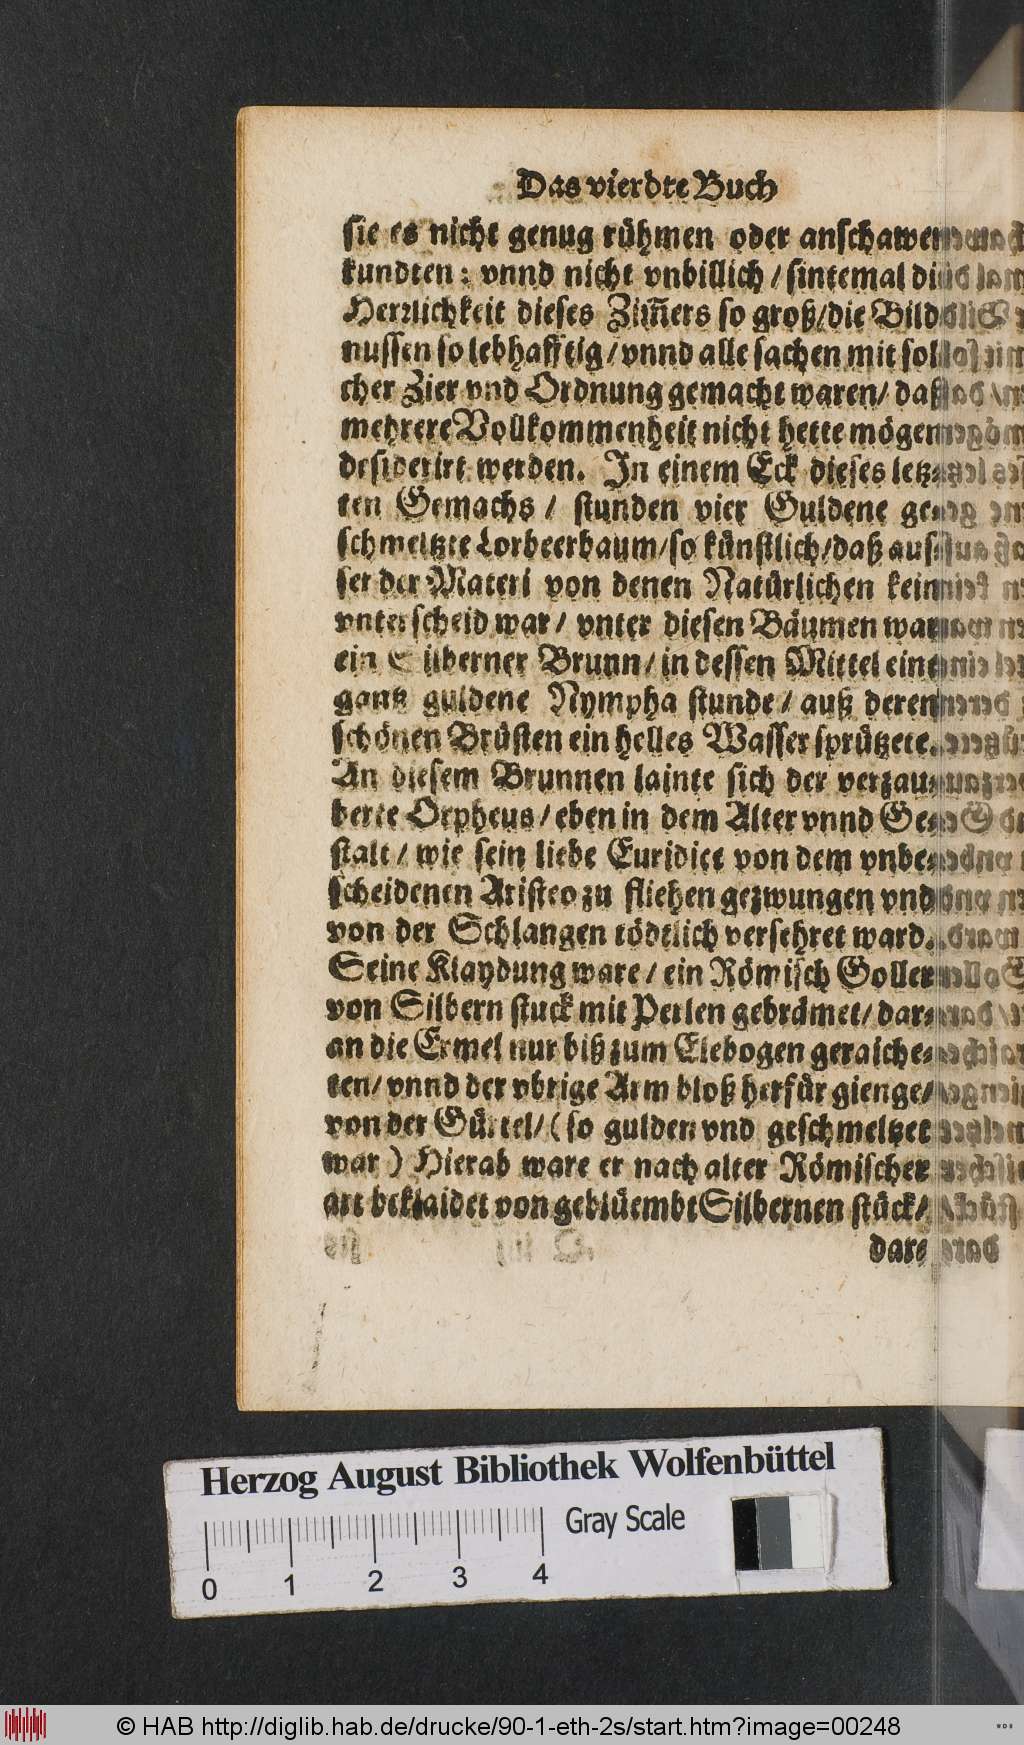 Das vierdte Buch
sie es nicht genug rühmen oder anschawen
kundten: vnnd nicht vnbillich / sintemal die
Herrlichkeit dieses Zim̃ers so groß/die Bild-
nussen so lebhafftig/ vnnd alle sachen mit sol-
cher Zier vnd Ordnung gemacht waren/ daß
mehrere Vollkommenheit nicht hette mögen
desiderirt werden. In einem Eck dieses letz-
ten Gemachs / stunden vier Guldene ge-
schmeltzte Lorbeerbaum/so künstlich/daß aus-
ser der Materi von denen Natürlichen kein
vnterscheid war/ vnter diesen Bäumen war
ein Silberner Brunn/ in dessen Mittel eine
gantz guldene Nympha stunde/ auß deren
schönen Brüsten ein helles Wasser sprützete.
An diesem Brunnen lainte sich der verzau-
berte Orpheus/ eben in dem Alter vnnd Ge-
stalt/ wie sein liebe Euridice von dem vnbe-
scheidenen Aristeo zu fliehen gezwungen vnd
von der Schlangen tödtlich versehret ward.
Seine Klaydung ware/ ein Römisch Goller
von Silbern stuck mit Perlen gebrämet/ dar-
an die Ermel nur biß zum Elebogen geraiche-
ten/ vnnd der vbrige Arm bloß herfür gienge/
von der Gürtel/ (so gulden vnd geschmeltzet
war) Hierab ware er nach alter Römischer
art beklaidet von geblüembt Silbernen stück/
dar-
Herzog August Bibliothek Wolfenbüttel
Gray Scale
0 1 2 3 4
© HAB http://diglib.hab.de/drucke/90-1-eth-2s/start.htm?image=00248